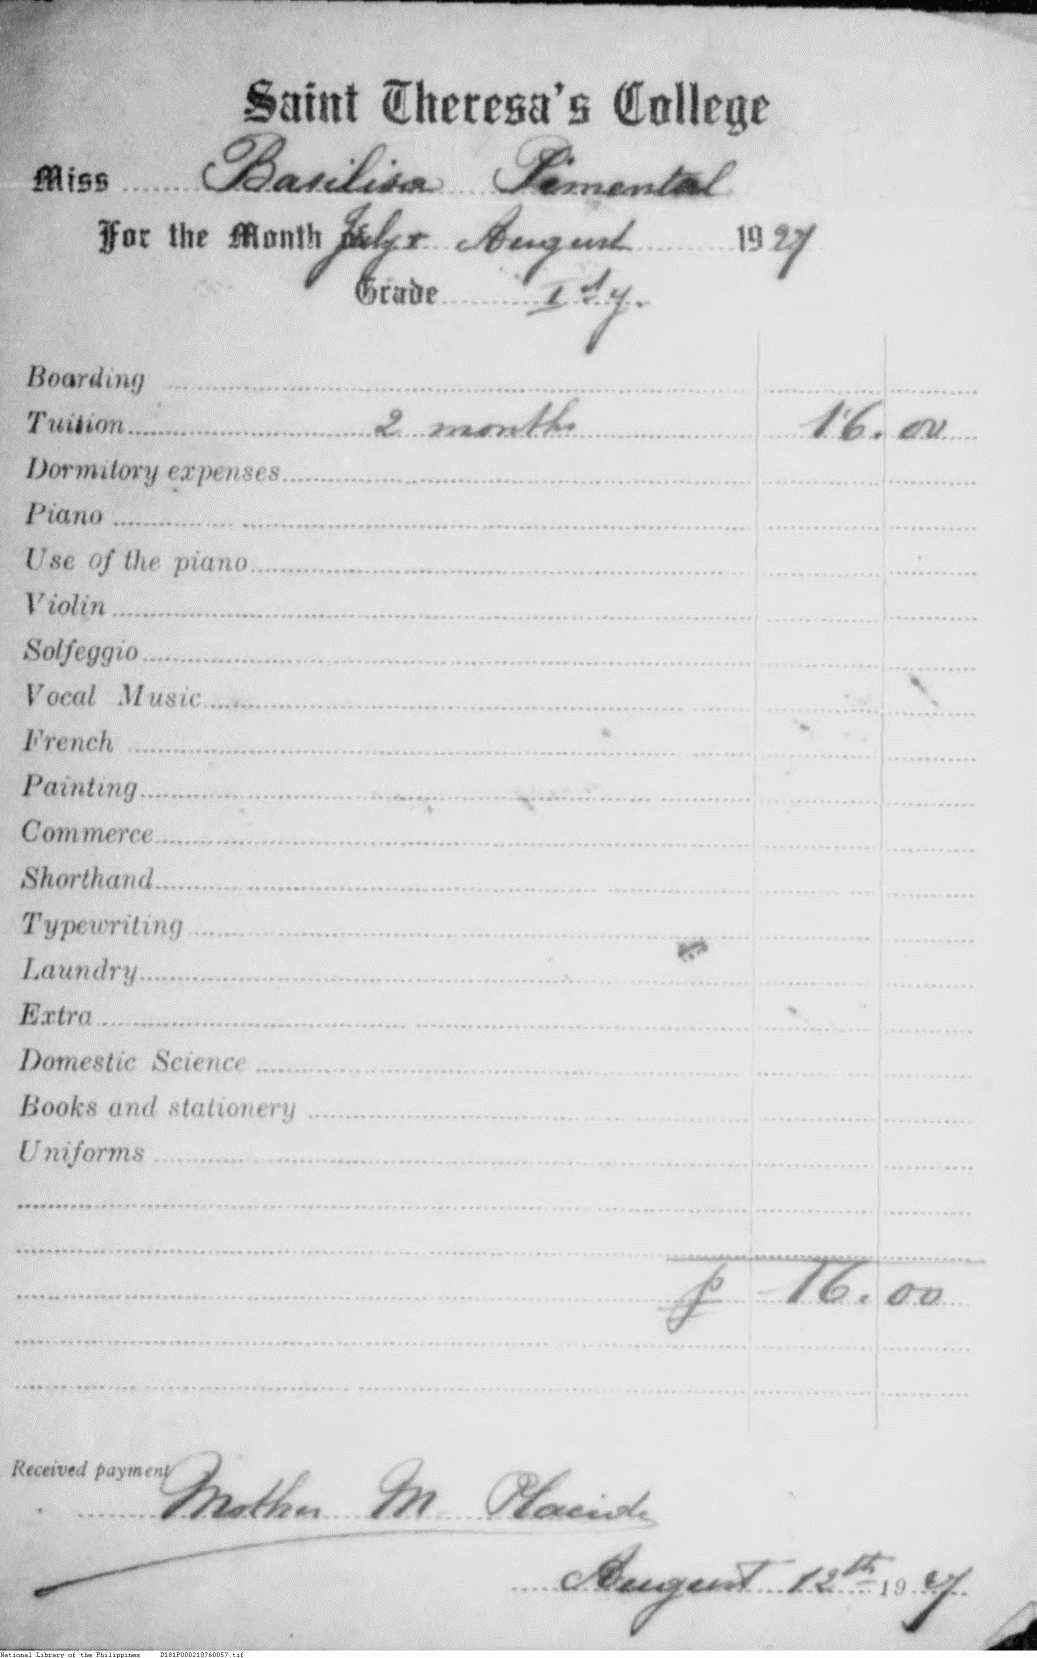 Saint Theresa's College
Miss Basilisa Pimental
For the Month July & August 1927
Grade I d y.
Boarding
Tuition 2 months 16.00
Dormitory expenses
Piano
Use of the piano
Violin
Solfeggio
Vocal Music
French
Painting
Commerce
Shorthand
Typewriting
Laundry
Extra
Domestic Science
Books and stationery
Uniforms
₱ 16.00
Received payment
Mother M Placide
August 12th 1927
National Library of the Philippines D181P000210760057.tif